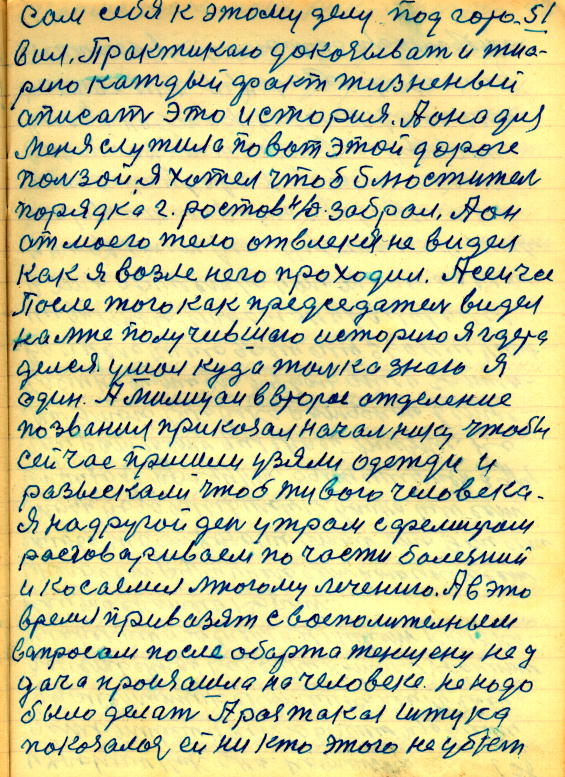 сам себя к этому делу подгото- 51
вил. Практикаю докозыват и тиа-
рию каждый факт жизненый
аписат это история. А она для
меня служила по вот этой дороге
ползой, я хотел чтоб блюстител
порядка г. ростов н/д. забрал. А он
от моего тело отвлекся не видел
как я возле него проходил. А сейчас
После того как председател видел
на мне получившаю историю я где ра
делся ушол куда толка знаю я
один. А милицаи в второе отделение
позванил приказал началнику чтобы
сейчас пришли узяли одежди и
разыскали чтоб живого человека.
Я на другой ден утрам с фелицатам
разговариваем по части болезний
и косаемся многому лечению. А в это
время привазят с восполителным
вапросам после обарта женщену не у
дача произашла на человеке. не нодо
было делат А раз такая штука
показалоя ей ни кто этого не убет